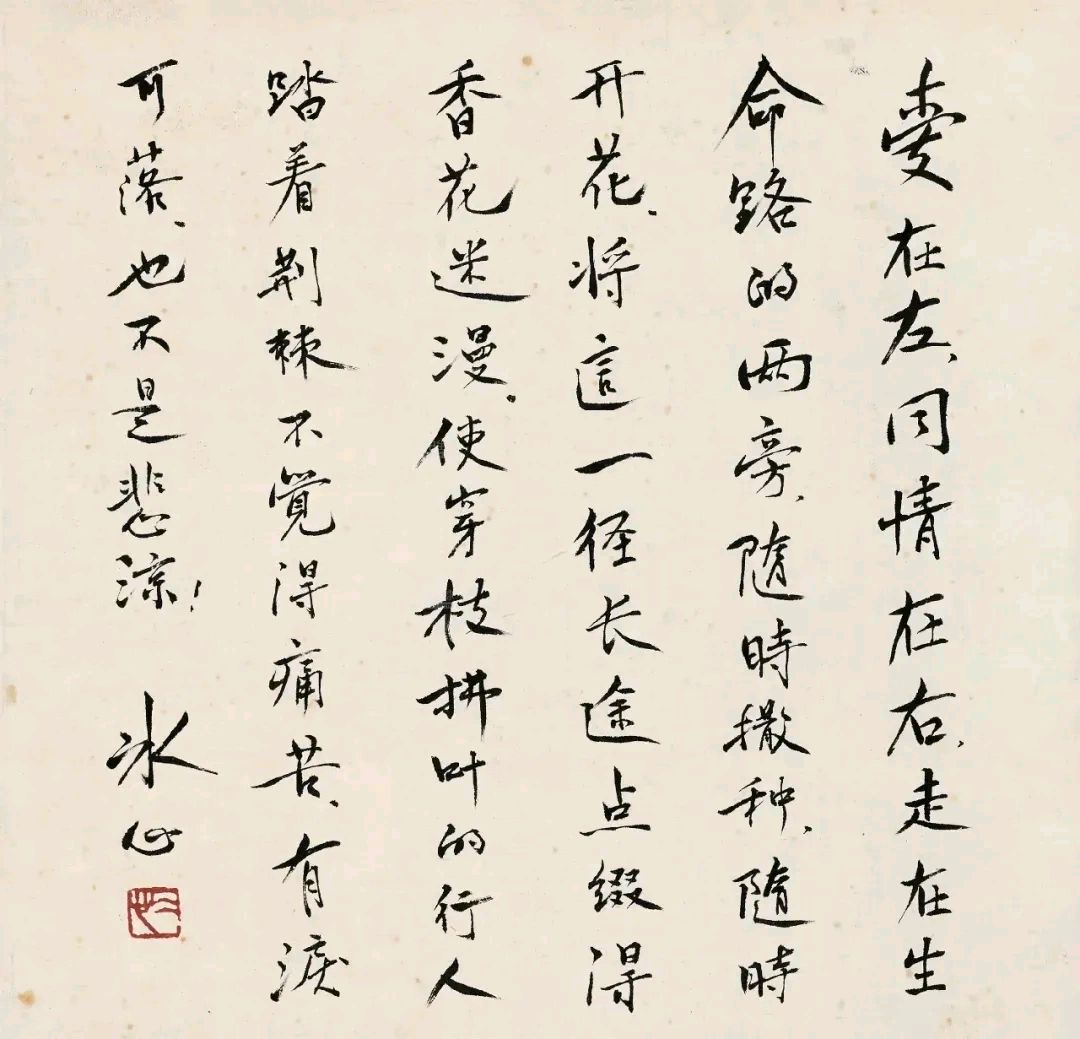 爱在左、同情在右、走在生
命路的两旁、随時撒种、随時
开花、将這一径长途点缀得
香花迷漫。使穿枝拂叶的行人
踏着荆棘不觉得痛苦、有淚
可落、也不是悲凉！
冰心